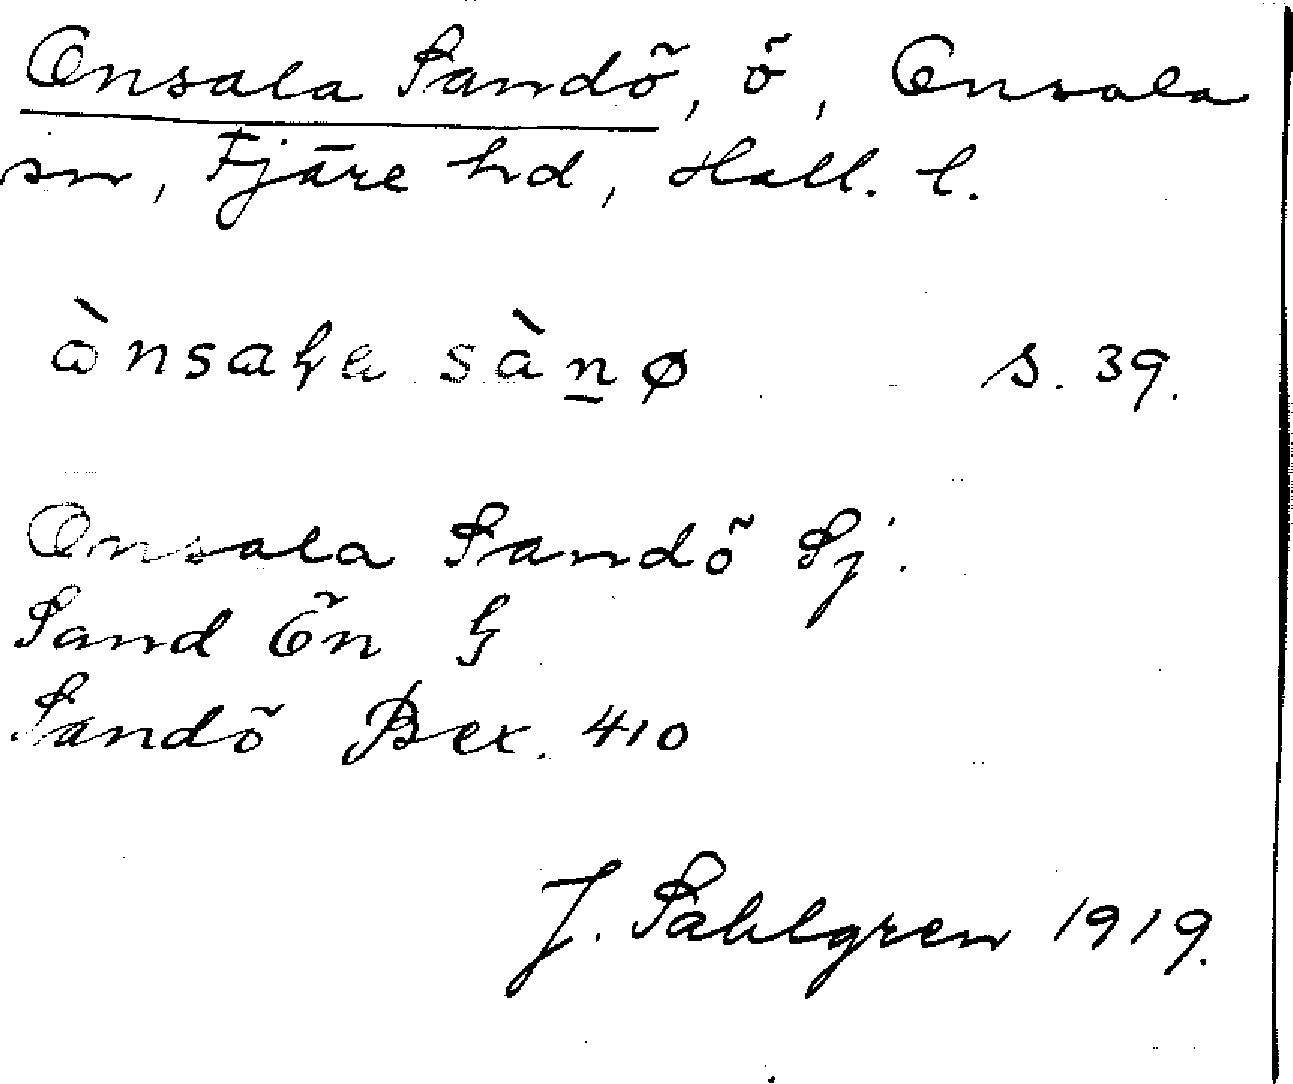 Onsala Sandö, ö, Onsala
sn, Fjäre hd, Hall. l.
ònsaɽa sàn̲ø s. 39.
Onsala Sandö Sj.
Sand Ön G
Sandö Bex. 410
J. Sahlgren 1919.